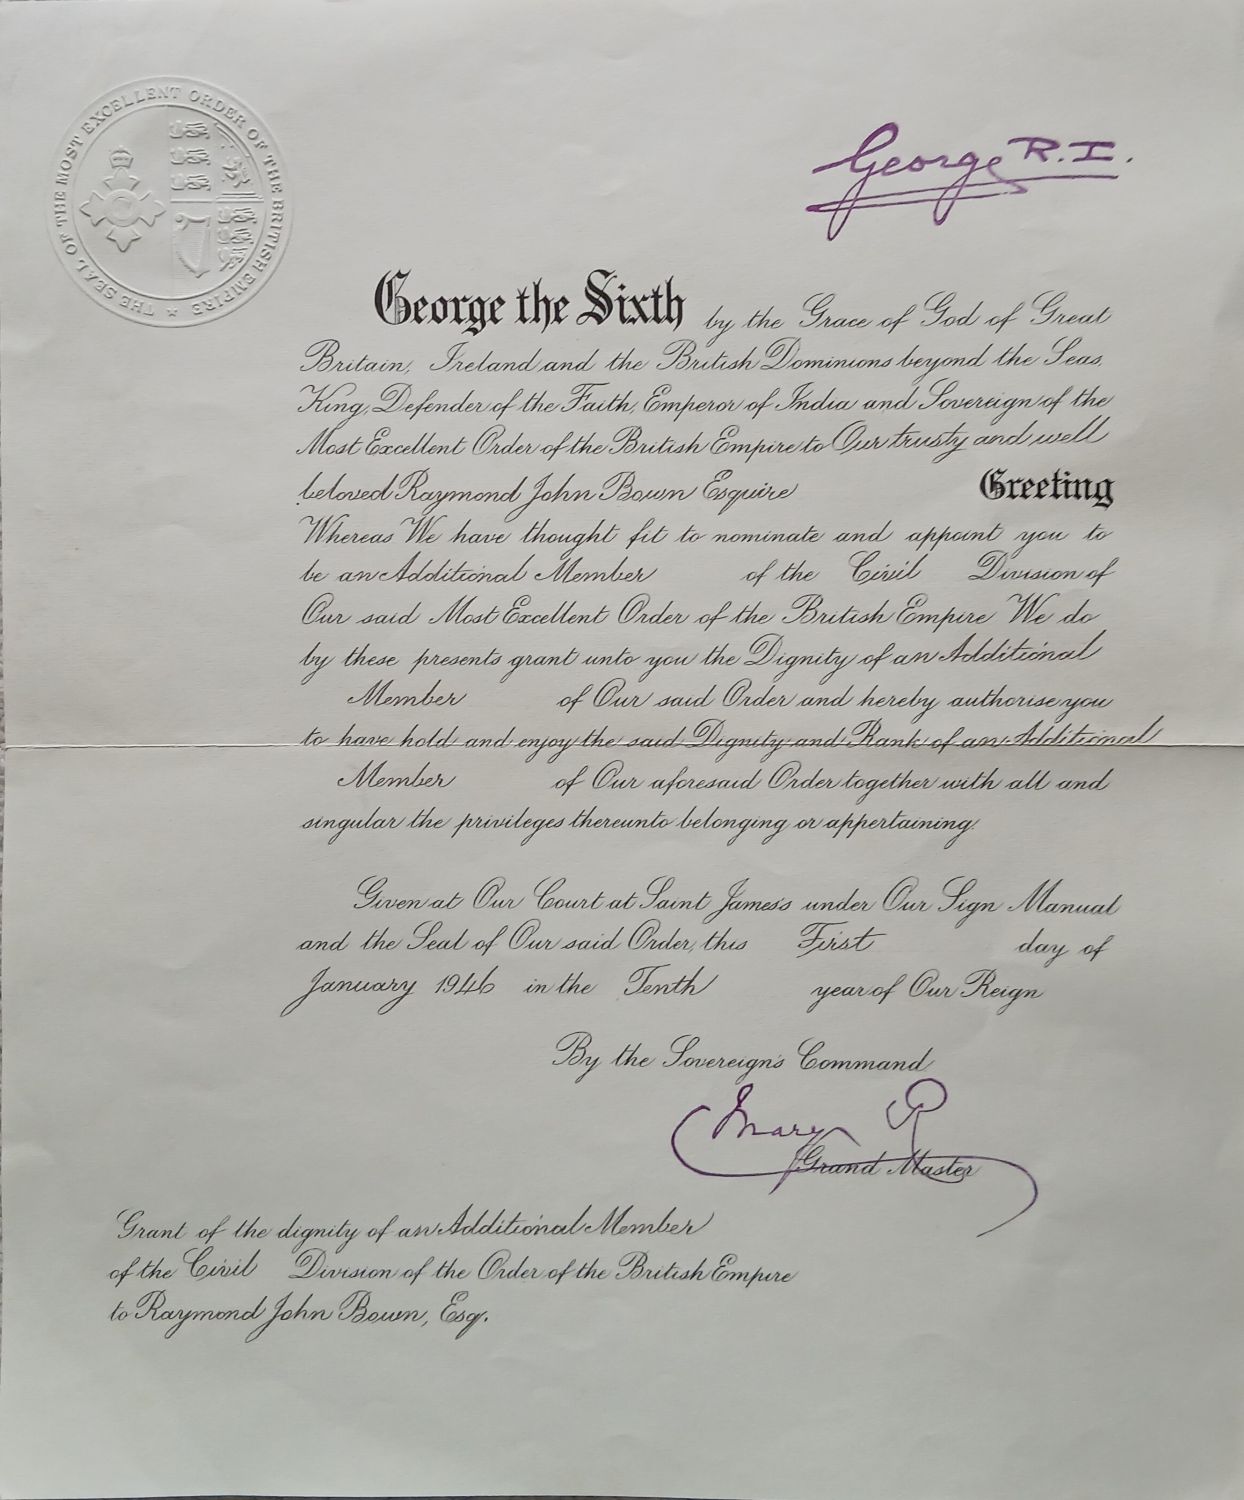 THE SEAL OF THE MOST EXCELLENT ORDER OF THE BRITISH EMPIRE
George R.I.
George the Sixth by the Grace of God of Great
Britain, Ireland and the British Dominions beyond the Seas,
King, Defender of the Faith, Emperor of India and Sovereign of the
Most Excellent Order of the British Empire to Our trusty and well
beloved Raymond John Bown Esquire Greeting
Whereas We have thought fit to nominate and appoint you to
be an Additional Member of the Civil Division of
Our said Most Excellent Order of the British Empire We do
by these presents grant unto you the Dignity of an Additional
Member of Our said Order and hereby authorise you
to have hold and enjoy the said Dignity and Rank of an Additional
Member of Our aforesaid Order together with all and
singular the privileges thereunto belonging or appertaining.
Given at Our Court at Saint James's under Our Sign Manual
and the Seal of Our said Order, this First day of
January 1946 in the Tenth year of Our Reign
By the Sovereign's Command
Mary R
Grand Master
Grant of the dignity of an Additional Member
of the Civil Division of the Order of the British Empire
to Raymond John Bown, Esq.